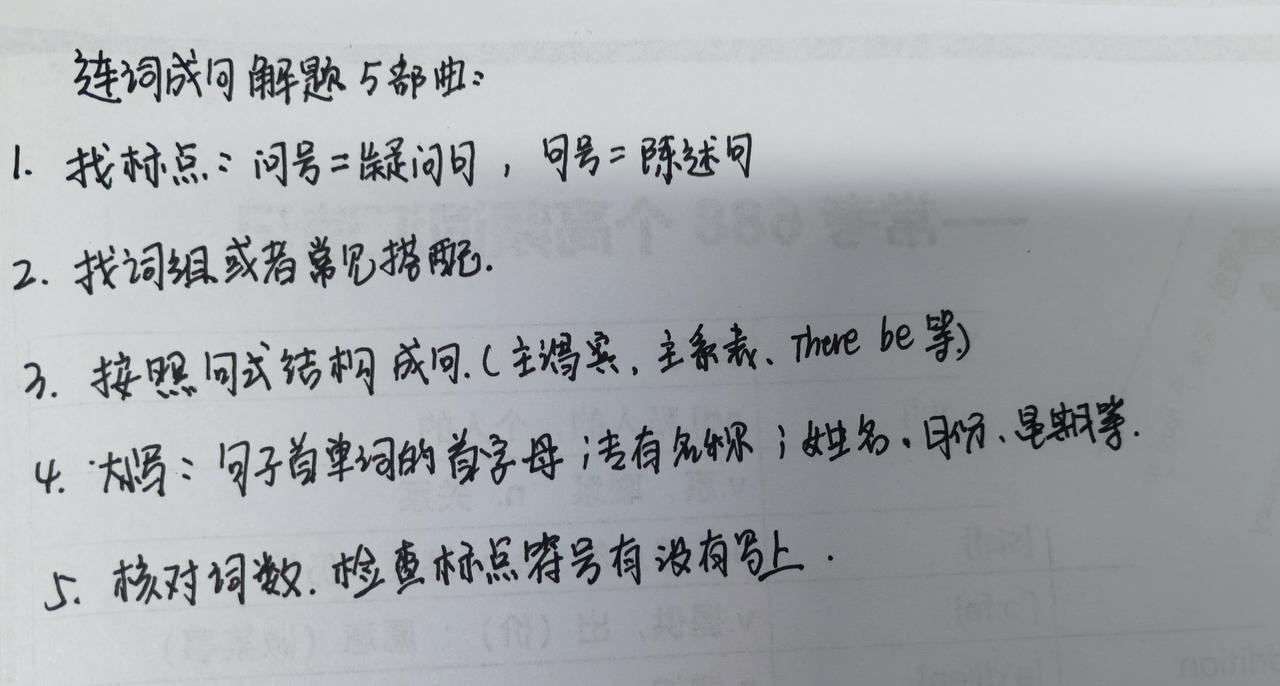 连词成句解题5部曲:
1. 找标点:问号=疑问句,句号=陈述句
2. 找词组或者常见搭配.
3. 按照句式结构成句.(主谓宾,主系表、There be等)
4. 大写:句子首单词的首字母;专有名称;姓名、月份、星期等.
5. 核对词数.检查标点符号有没有写上.